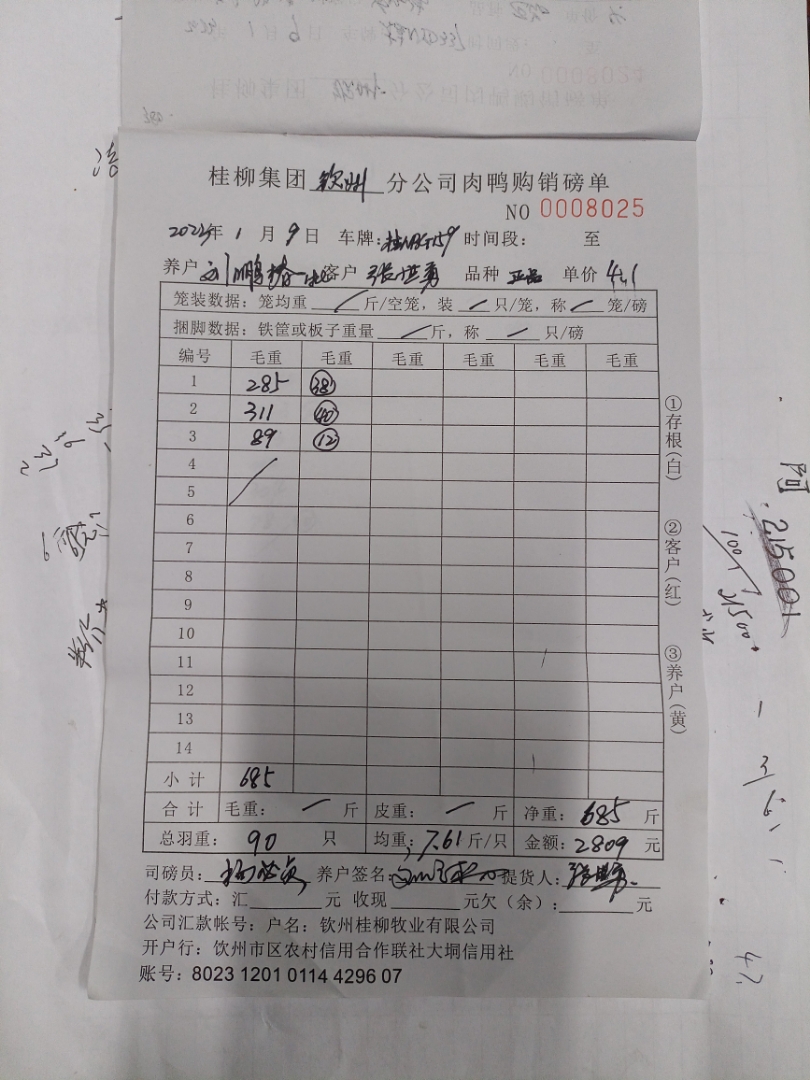 桂柳集团 钦州 分公司肉鸭购销磅单
NO 0008025
2023年 1 月 9 日 车牌: 时间段: 至
养户 刘鹏 客户 张世勇 品种 正品 单价 4.1
笼装数据: 笼均重 / 斤/空笼, 装 / 只/笼, 称 / 笼/磅
捆脚数据: 铁筐或板子重量 / 斤, 称 / 只/磅
编号 毛重 毛重 毛重 毛重 毛重 毛重
1 285 38
2 311 40
3 89 12
4
5
6
7
8
9
10
11
12
13
14
小 计 685
合 计 毛重: / 斤 皮重: / 斤 净重: 685 斤
总羽重: 90 只 均重: 7.61 斤/只 金额: 2809 元
司磅员: 养户签名: 提货人: 张世勇
付款方式: 汇 元 收现 元欠(余): 元
公司汇款帐号: 户名: 钦州桂柳牧业有限公司
开户行: 饮州市区农村信用合作联社大垌信用社
账号: 8023 1201 0114 4296 07
①存根(白)
②客户(红)
③养户(黄)
阿
215001
1001
21500
1
3
47